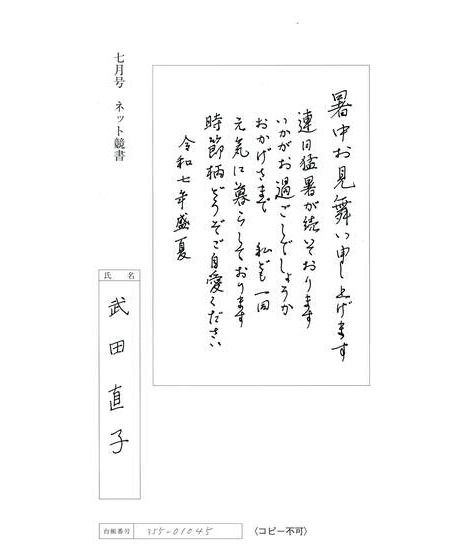 七月号　ネット競書
暑中お見舞い申し上げます
連日猛暑が続いております
いかがお過ごしでしょうか
おかげさまで　私ども一同
元気に暮らしております
時節柄どうぞご自愛ください
令和七年盛夏
氏名
武田直子
台帳番号 755-01045
〈コピー不可〉